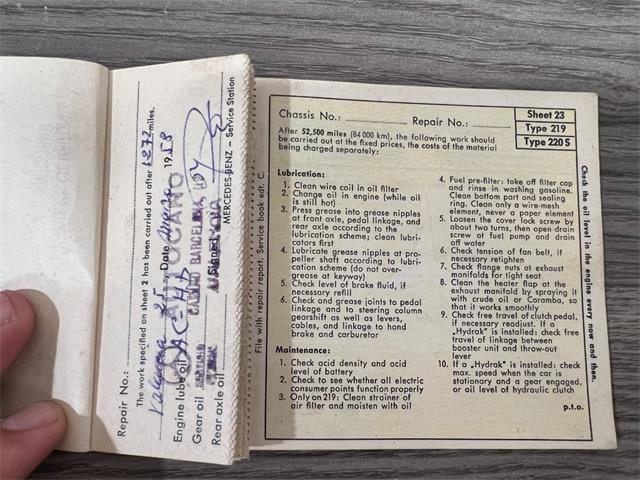 Repair No.:
The work specified on sheet 2 has been carried out after 1272 miles.
25 Date 1958
Engine lube oil
AUTOCANO
Gear oil
Rear axle oil
Signed
MERCEDES-BENZ – Service Station
File with repair report. Service book edt. C.
Chassis No.: Repair No.:
Sheet 23
Type 219
Type 220 S
After 52,500 miles (84 000 km), the following work should
be carried out at the fixed prices, the costs of the material
being charged separately:
Lubrication:
1. Clean wire coil in oil filter
2. Change oil in engine (while oil
is still hot)
3. Press grease into grease nipples
at front axle, pedal linkage, and
rear axle according to the
lubrication scheme; clean lubri-
cators first
4. Lubricate grease nipples at pro-
peller shaft according to lubri-
cation scheme (do not over-
grease at keyway)
5. Check level of brake fluid, if
necessary refill
6. Check and grease joints to pedal
linkage and to steering column
gearshift as well as levers,
cables, and linkage to hand
brake and carburetor
Maintenance:
1. Check acid density and acid
level of battery
2. Check to see whether all electric
consumer points function properly
3. Only on 219: Clean strainer of
air filter and moisten with oil
4. Fuel pre-filter: take off filter cap
and rinse in washing gasoline.
Clean bottom part and sealing
ring. Clean only a wire-mesh
element, never a paper element
5. Loosen the cover lock screw by
about two turns, then open drain
screw at fuel pump and drain
off water
6. Check tension of fan belt, if
necessary retighten
7. Check flange nuts at exhaust
manifolds for tight seat
8. Clean the heater flap at the
exhaust manifold by spraying it
with crude oil or Caramba, so
that it works smoothly
9. Check free travel of clutch pedal,
if necessary readjust. If a
„Hydrak" is installed: check free
travel of linkage between
booster unit and throw-out
lever
10. If a „Hydrak" is installed: check
max. speed when the car is
stationary and a gear engaged,
or oil level of hydraulic clutch
p.t.o.
Check the oil level in the engine every now and then.